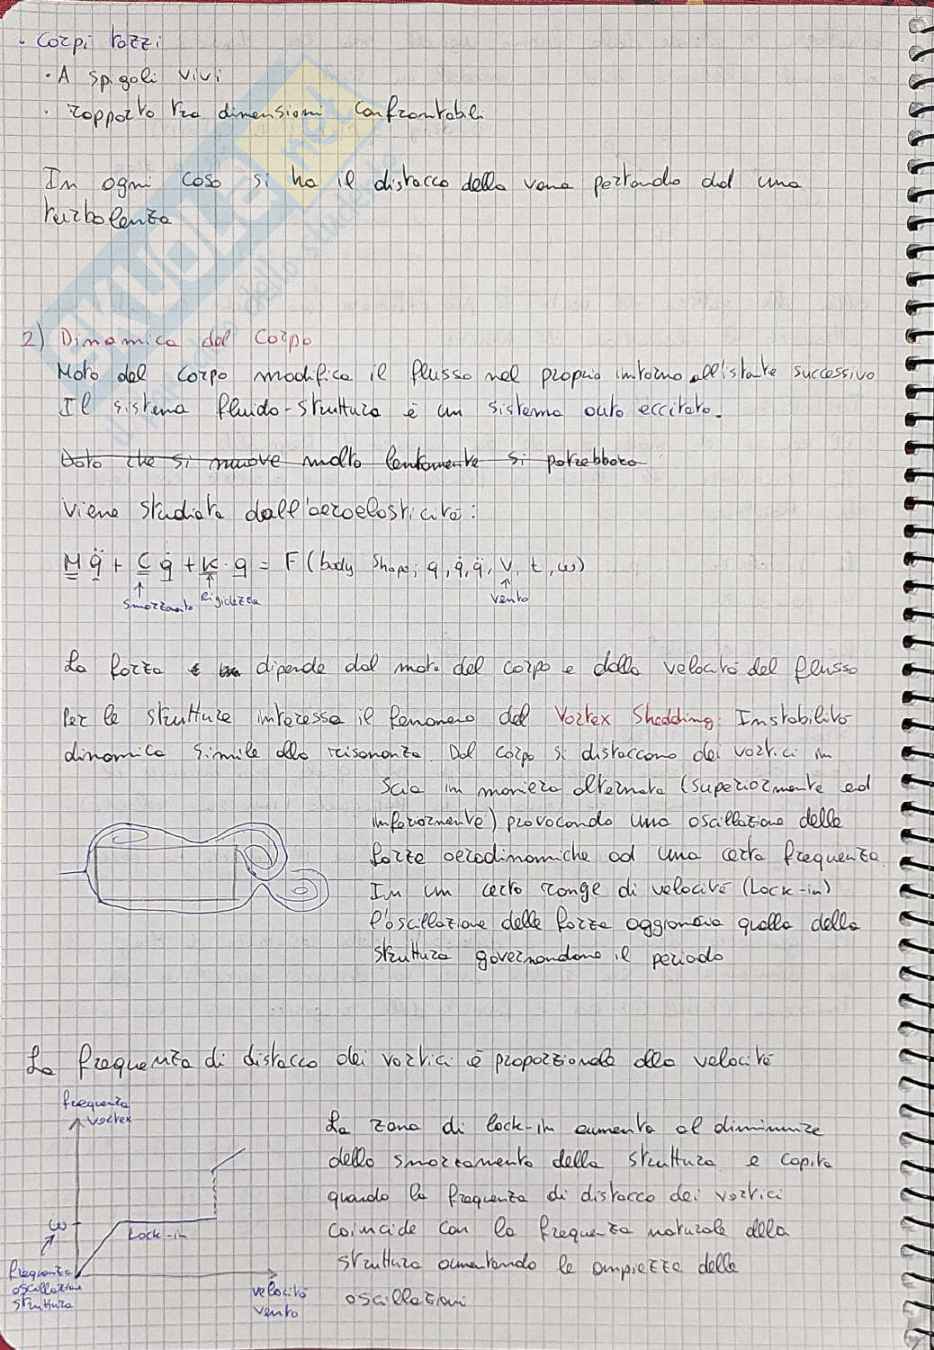 · Corpi tozzi
· A spigoli vivi
· rapporto tra dimensioni confrontabili
In ogni caso si ha il distacco della vena portando ad una
turbolenza
SKUOLA.net
2) Dinamica del Corpo
Moto del corpo modifica il flusso nel proprio intorno all'istante successivo
Il sistema fluido-struttura è un sistema auto eccitato.
Dato che si muove molto lentamente si potrebbero
Viene studiata dall'aeroelasticità:
M q̈ + C q̇ + K · q = F (body Shape, q, q̇, q̈, V, t, ω)
smorzamento rigidezza vento
La forza dipende dal moto del corpo e dalla velocità del flusso
Per le strutture interessa il fenomeno del Vortex Shedding: Instabilità
dinamica simile alla risonanza. Dal corpo si distaccano dei vortici in
scia in maniera alternata (superiormente ed
inferiormente) provocando una oscillazione delle
forze aerodinamiche ad una certa frequenza.
In un certo range di velocità (Lock-in)
l'oscillazione delle forza aggancia quella della
struttura governandone il periodo
La frequenza di distacco dei vortici è proporzionale alla velocità
frequenza
vortex
ω
Lock-in
frequenza
oscillazione
struttura
velocità
vento
La zona di lock-in aumenta al diminuire
dello smorzamento della struttura e capita
quando la frequenza di distacco dei vortici
coincide con la frequenza naturale della
struttura aumentando le ampiezze delle
oscillazioni